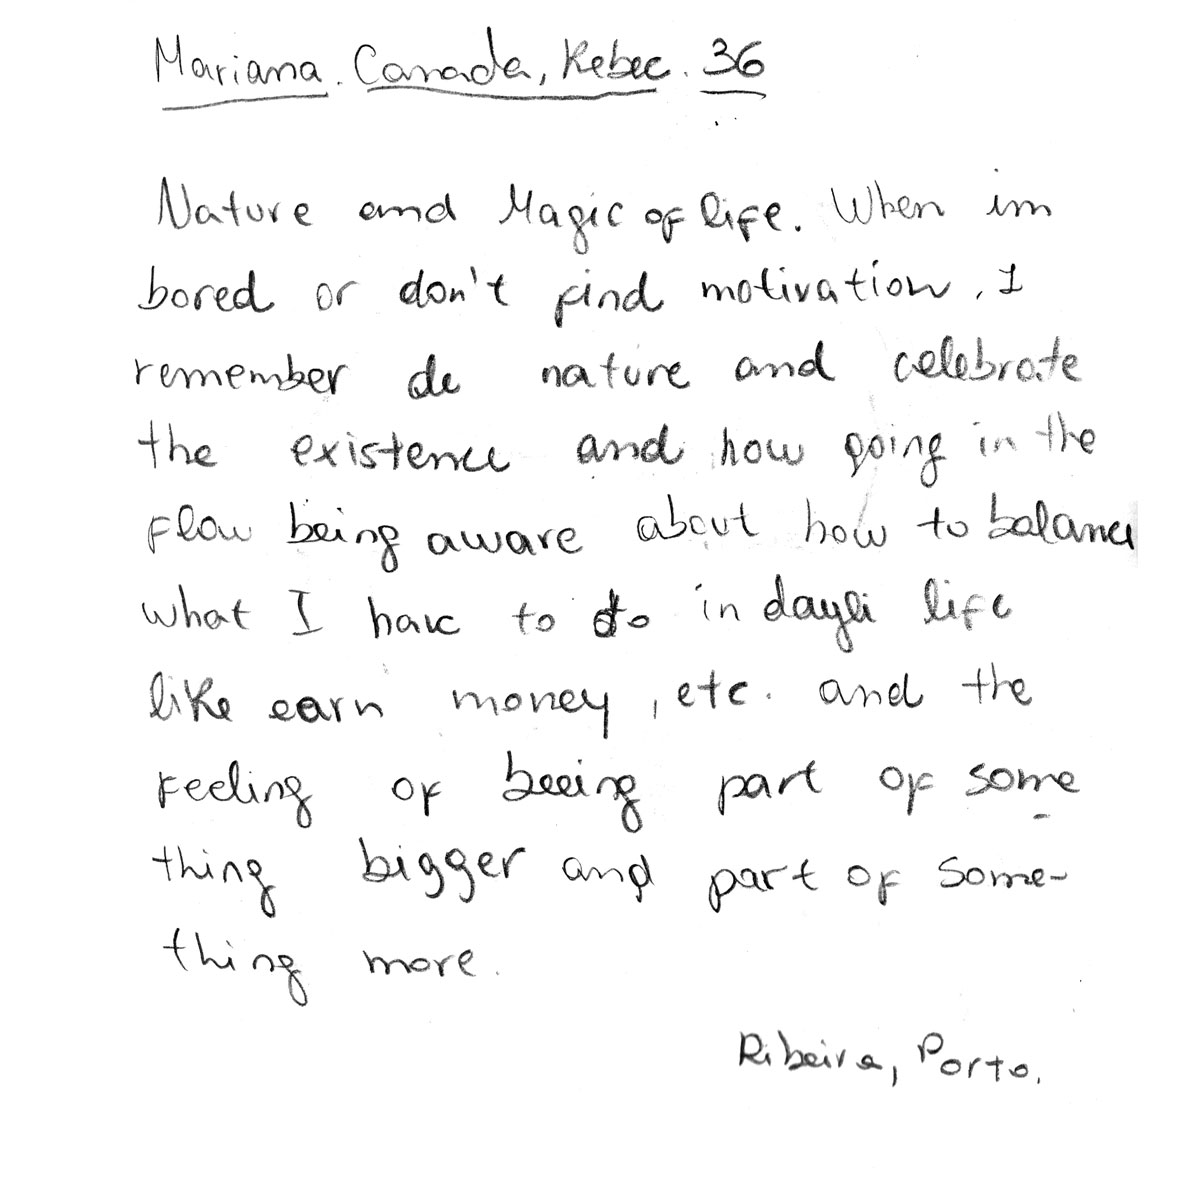 Mariana. Canada, Kebec. 36
Nature and Magic of life. When im
bored or don't find motivation, I
remember de nature and celebrate
the existence and how going in the
flow being aware about how to balance
what I have to do in dayli life
like earn money, etc. and the
feeling of beeing part of some
thing bigger and part of some-
thing more.
Ribeira, Porto.